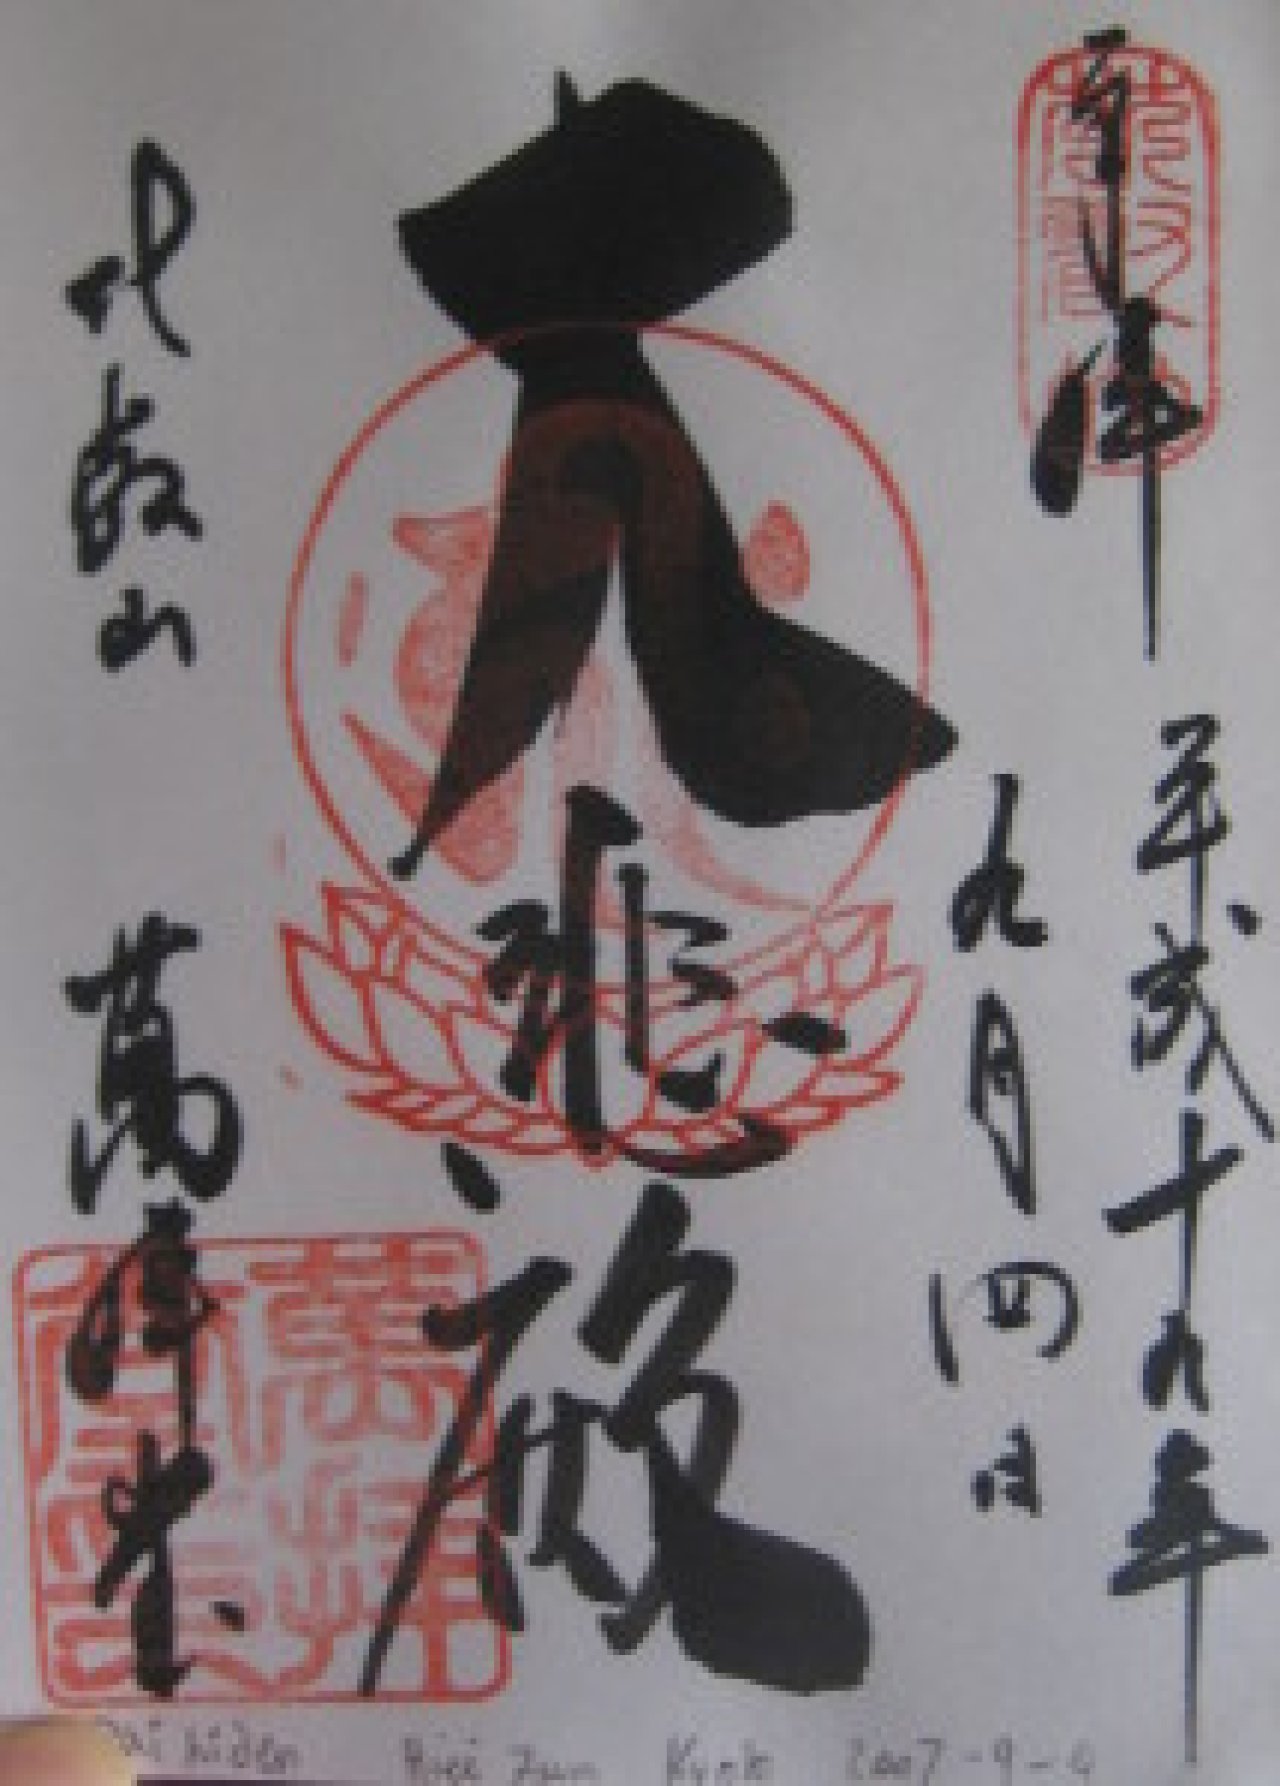 奉拝
平成十九年
九月四日
大悲殿
比叡山
萬拝堂
Dai hiden Hiei Zan Kyoto 2007-9-4